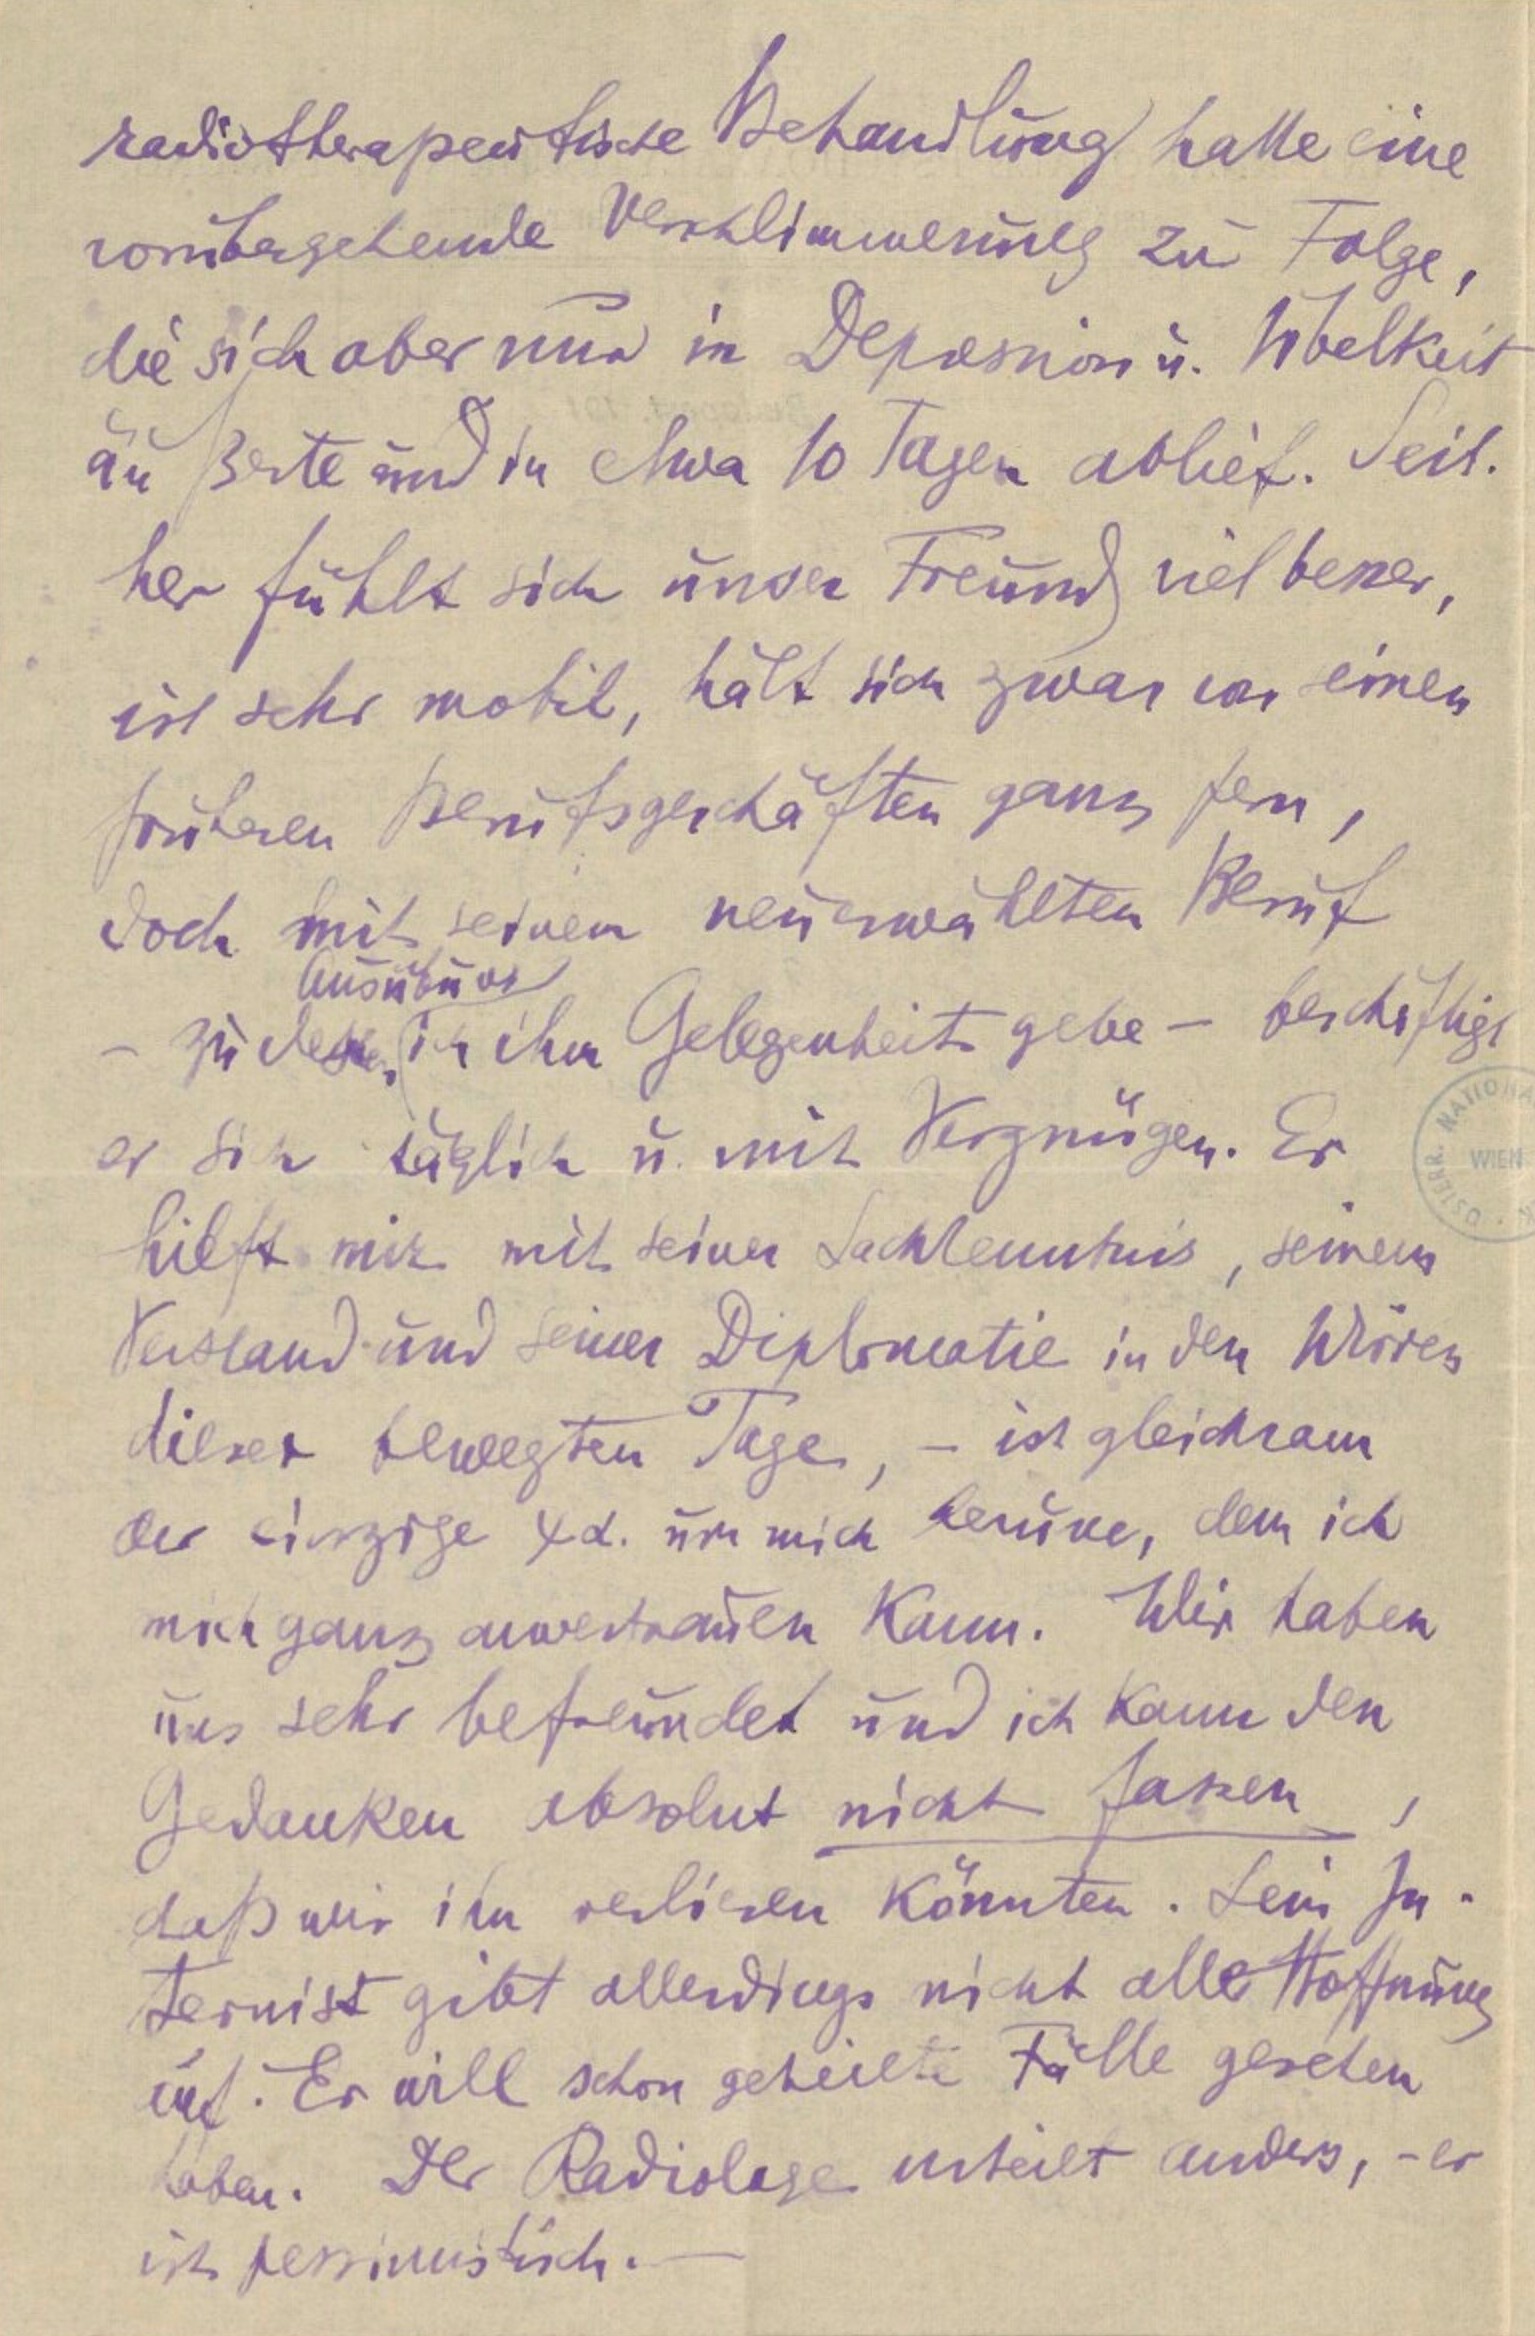 radiotherapeutische Behandlung hatte eine
vorübergehende Verschlimmerung zu Folge,
die sich aber nur in Depression u. Übelkeit
äußerte und in etwa 10 Tagen ablief. Seit-
her fühlt sich unser Freund viel besser,
ist sehr mobil, hält sich zwar von seinen
früheren Berufsgeschäften ganz fern,
doch mit seinem neuerwählten Beruf
Ausübung
– zu dessen ich ihm Gelegenheit gebe – beschäftigt
er sich täglich u. mit Vergnügen. Er
hilft mir mit seiner Sachkenntnis, seinem
Verstand und seiner Diplomatie in den Wirren
dieser bewegten Tage, – ist gleichsam
der einzige ψα. um mich herum, dem ich
mich ganz anvertrauen kann. Wir haben
uns sehr befreundet und ich kann den
Gedanken absolut nicht fassen,
daß wir ihn verlieren könnten. Sein In-
ternist gibt allerdings nicht alle Hoffnung
auf. Er will schon geheilte Fälle gesehen
haben. Der Radiologe urteilt anders, – er
ist pessimistisch. —
ÖSTERR. NATIONA
WIEN